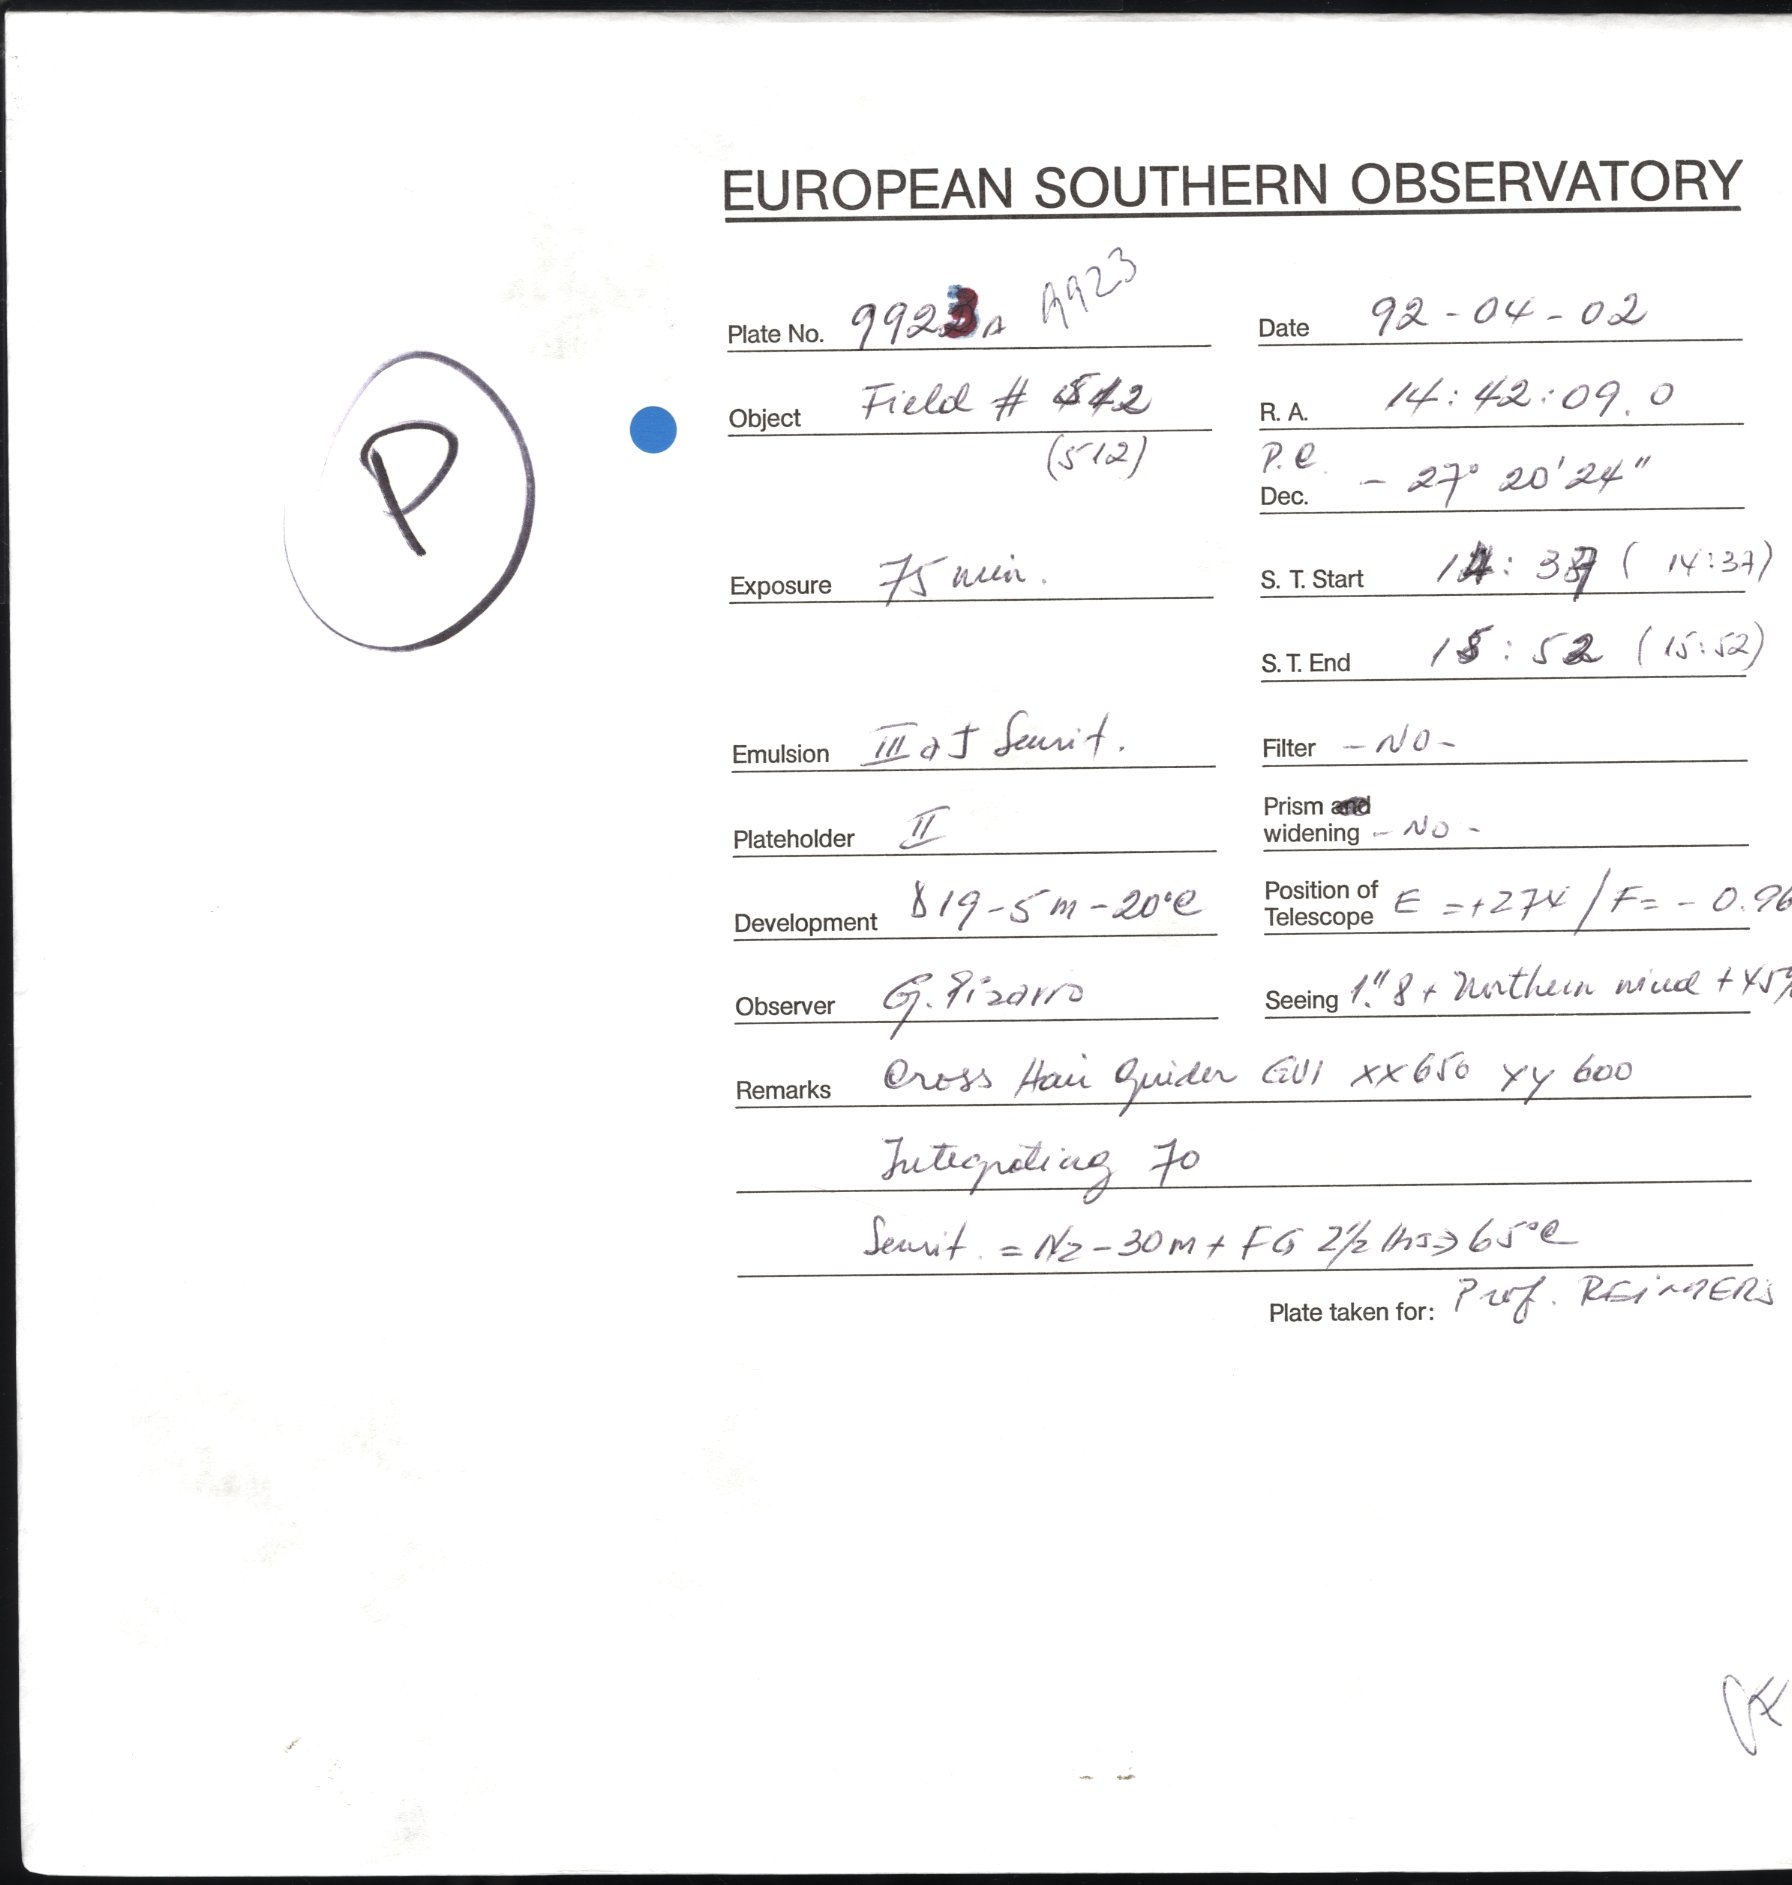 EUROPEAN SOUTHERN OBSERVATORY
Plate No. 9923A 9923
Date 92-04-02
Object Field # 512
(512)
R. A. 14:42:09.0
P.C.
Dec. - 27° 20' 24"
Exposure 75 min.
S. T. Start 14: 37 ( 14:37)
S. T. End 15: 52 (15:52)
Emulsion III a J Sensit.
Filter - NO -
Plateholder II
Prism
widening - NO -
Development D19-5m-20°C
Position of
Telescope E =+274 / F= - 0.96
Observer G. Pizarro
Seeing 1."8 + Northern wind +45%
Remarks Cross Hair Guider GU1 XX650 XY 600
Integrating 70
Sensit. = N2-30m + FG 2½ hrs⇒65°C
Plate taken for: Prof. REIMERS
P